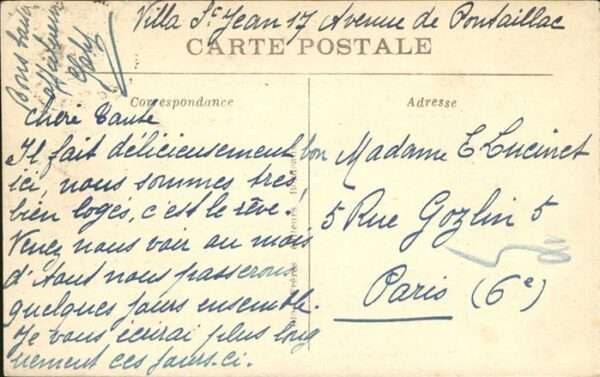 Villa St Jean 17 Avenue de Pontaillac
CARTE POSTALE
Correspondance
Adresse
Bons baisers
affectueux
Chère Tante
Il fait délicieusement bon
ici, nous sommes très
bien logés, c'est le rêve.
Venez nous voir au mois
d'Aout nous passerons
quelques jours ensemble.
Je vous écrirai plus long
uement ces jours-ci.
Madame E Lucinet
5 Rue Gozlin 5
Paris (6e)